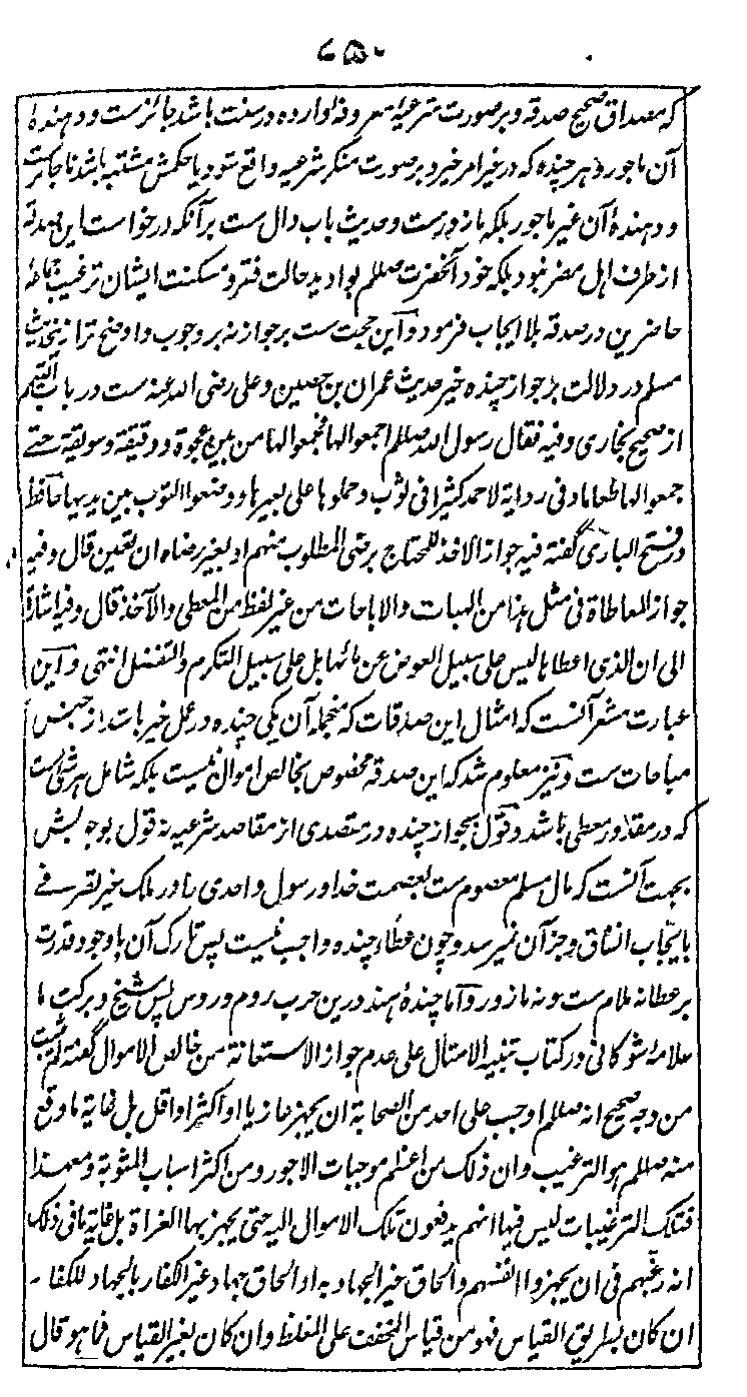 ۶۵۰
که مصداق صحیح صدقه و بر صورت شرعیه معروفه وارده در سنت باشد جائز ست و دهندهٔ
آن ماجور و هر چنده که در غیر امر خیر و بر صورت منکر شرعیه واقع شود یا حکمش مشتبه باشد ناجائز ست
و دهندهٔ آن غیر ماجور بلکه مازور ست و حدیث باب دال ست بر آنکه درخواست این صدقه
از طرف اهل مضر نبود بلکه خود آنحضرت صلعم بوادید حالت فقر و مسکنت ایشان ترغیب
حاضرین در صدقه بلا ایجاب فرمود و این حجت ست بر جواز نه بر وجوب و واضح تر ازین حدیث
مسلم در دلالت بر جواز چنده خیر حدیث عمران بن حصین و علی رضی الله عنه ست در باب التیمم
از صحیح بخاری و فیه فقال رسول الله صلعم اجمعوا لها فجمعوا لها من بین عجوة و دقیقة و سویقة حتے
جمعوا لها طعاما و فی روایة لاحمد کثیرا فی ثوب و حملوها علی بعیرها و وضعوا الثوب بین یدیها حافظ
در فتح الباری گفته فیه جواز الاخذ للمحتاج برضی المطلوب منهم او بغیر رضاه ان تعین قال و فیه
جواز المعاطاة فی مثل هذا من الهبات والاباحات من غیر لفظ من المعطی والآخذ قال و فیه اشارة
الی ان الذی اعطاها لیس علی سبیل العوض عن مائها بل علی سبیل التکرم والتفضل انتهی و این
عبارت مشعر آنست که امثال این صدقات که منجمله آن یکی چنده در عمل خیر باشد از جنس
مباحات ست و نیز معلوم شد که این صدقه مخصوص بخالص اموال نیست بلکه شامل هر شئ ست
که در مقدور معطی باشد و قول بجواز چنده در مقصدی از مقاصد شرعیه نه قول بوجوبش
بجهت آنست که مال مسلم معصوم ست بعصمت خدا و رسول و احدی را در ملک غیر تصرف
بایجاب انفاق و جز آن نمیرسد و چون عطاء چنده واجب نیست پس تارک آن باوجود قدرت
بر عطا نه ملام ست و نه مازور و اما چندهٔ هند درین حرب روم و روس پس شیخ و برکت ما
علامهٔ شوکانی در کتاب تنبیه الامثال علی عدم جواز الاستعانة من خالص الاموال گفته لم یثبت
من وجه صحیح انه صلعم اوجب علی احد من الصحابة ان یجهز غازیا او اکثر او اقل بل غایة ما وقع
منه صلعم هو الترغیب و ان ذلک من اعظم موجبات الاجور و من اکثر اسباب المثوبة و معهذا
فتلک الترغیبات لیس فیها انهم یدفعون تلک الاموال الیه حتی یجهز بها الغزاة بل غایة ما فی ذلک
انه رغبهم فی ان یجهزوا انفسهم والحاق غیر الجهاد به او الحاق جهاد غیر الکفار بالجهاد للکفار
ان کان بطریق القیاس فهو من قیاس المخفف علی المغلظ و ان کان بغیر القیاس فما هو قال